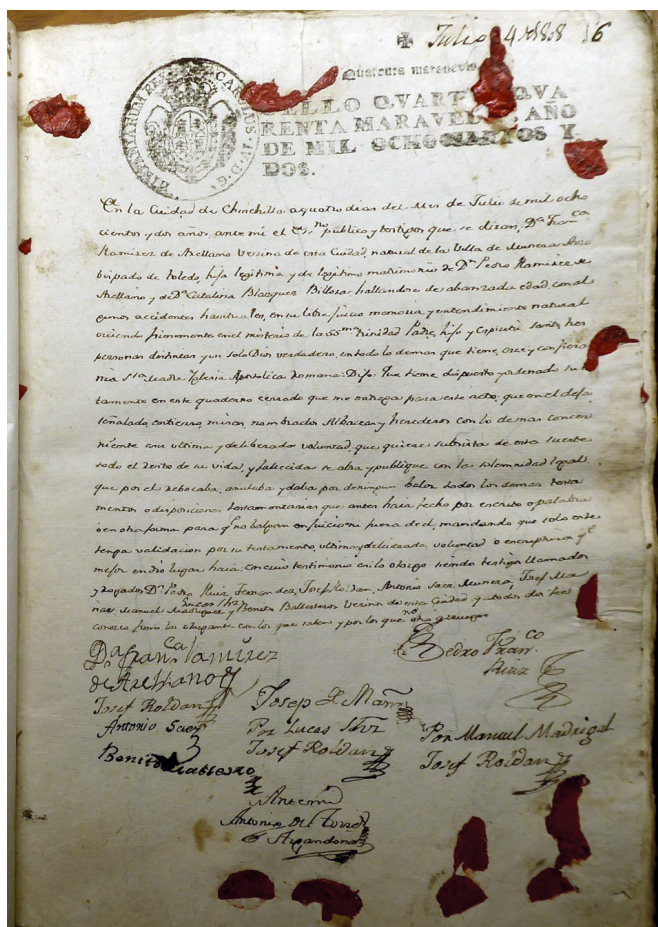 Julio 4 de 1808 16
Quarenta maravedis
CAROLUS IV D G HISPANIARUM REX
SELLO QVARTO QVA
RENTA MARAVEDIS, AÑO
DE MIL OCHOCIENTOS Y
DOS.
En la Ciudad de Chinchilla a quatro dias del Mes de Julio de mil ocho
cientos y dos años, ante mi el Essno publico y testigos que se diran, Da Franca
Ramirez de Arellano Vecina de esta Ciudad, natural de la Villa de Munera Arzo
bispado de Toledo, hija legitima y de legitimo matrimonio de Dn Pedro Ramirez de
Arellano y de Da Catalina Blazquez Billora, hallandose de abanzada edad, con al
gunos accidentes havituales, en su libre juicio memoria y entendimiento natural
creiendo firmemente en el misterio de la SSma Trinidad Padre, hijo y Espiritu Santo, tres
personas distintas y un solo Dios verdadero, en todo lo demas que tiene, cree y confiesa
nra Sta Madre Iglesia Apostolica Romana: Dijo: Que tiene dispuesto y ordenado su tes
tamento en este quaderno cerrado que me entrega para este acto; que en el deja
señalado, entierro, misas, nombrados Albaceas y herederos con lo demas concer
niente a su ultima y deliberada voluntad, que quiere subsista de esta suerte
todo el resto de su vida, y fallecida se abra y publique con la solemnidad legal
que por el rebocaba, anulaba y daba por de ningun balor todos los demas testa
mentos o disposiciones testamentarias que antes haia fecho por escrito o palabra
o en otra forma para qe no balgan en juicio ni fuera de el, mandando que solo este
tenga validacion por su testamento, ultima y deliverada voluntad o en aquella qe
mejor en dro lugar haia; en cuio testimonio asi lo otorgo siendo testigos llamados
y rogados Dn Pedro Ruiz Fernandez, Josef Roldan, Antonio Saez Munera, Josef Ma
ñas Lucas Manuel Madrigal y Benito Ballestero Vecinos de esta Ciudad y a todos doi fee
conozco, firmo la otorgante con los que saben y por los que no
Da Franca Ramirez
de Arellano
Pedro Franco
Ruiz
Josef Roldan
Josep Mañ
Antonio Saez
Por Lucas
Josef Roldan
Por Manuel Madrigal
Josef Roldan
Benito Ballestero
Antemi
Antonio de Torre
Arcandona